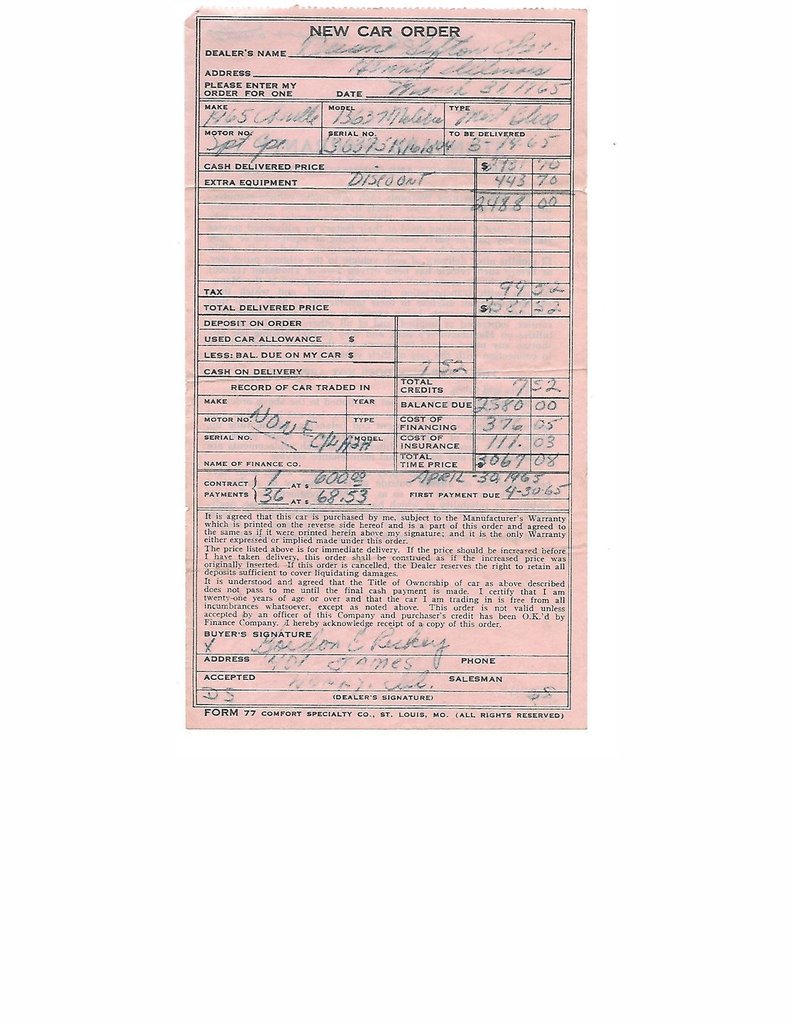 NEW CAR ORDER
DEALER'S NAME Chev.
ADDRESS Henry Illinois
PLEASE ENTER MY
ORDER FOR ONE DATE March 31, 1965
MAKE MODEL TYPE
1965 Chevelle 13637 Malibu
MOTOR NO. SERIAL NO. TO BE DELIVERED
Spt Cpe. 3-19-65
CASH DELIVERED PRICE $ 70
EXTRA EQUIPMENT DISCOUNT 443 70
2488 00
TAX 99 52
TOTAL DELIVERED PRICE $ 52
DEPOSIT ON ORDER
USED CAR ALLOWANCE $
LESS: BAL. DUE ON MY CAR $
CASH ON DELIVERY 7 52
RECORD OF CAR TRADED IN TOTAL CREDITS 7 52
MAKE YEAR BALANCE DUE 2580 00
MOTOR NO. NONE TYPE COST OF FINANCING 376 05
SERIAL NO. MODEL COST OF INSURANCE 111. 03
NAME OF FINANCE CO. TOTAL TIME PRICE 3067 08
CONTRACT 1 AT $ 600.00 APRIL-30, 1965
PAYMENTS 36 AT $ 68.53 FIRST PAYMENT DUE 4-30-65
It is agreed that this car is purchased by me, subject to the Manufacturer's Warranty
which is printed on the reverse side hereof and is a part of this order and agreed to
the same as if it were printed herein above my signature; and it is the only Warranty
either expressed or implied made under this order.
The price listed above is for immediate delivery. If the price should be increased before
I have taken delivery, this order shall be construed as if the increased price was
originally inserted. If this order is cancelled, the Dealer reserves the right to retain all
deposits sufficient to cover liquidating damages.
It is understood and agreed that the Title of Ownership of car as above described
does not pass to me until the final cash payment is made. I certify that I am
twenty-one years of age or over and that the car I am trading in is free from all
incumbrances whatsoever, except as noted above. This order is not valid unless
accepted by an officer of this Company and purchaser's credit has been O.K.'d by
Finance Company. I hereby acknowledge receipt of a copy of this order.
BUYER'S SIGNATURE
X Gordon C
ADDRESS 401 JAMES PHONE
ACCEPTED HENRY, SALESMAN
DS (DEALER'S SIGNATURE) DS
FORM 77 COMFORT SPECIALTY CO., ST. LOUIS, MO. (ALL RIGHTS RESERVED)